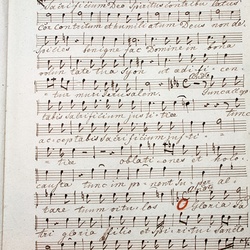 Sacrificium Deo Spiritus contribulatus
Cor contritum et humiliatum Deus non de=
spicies benigne fac Domine in bona
voluntate tua Syon ut aedificen=
tur muri Jerusalem. Tunc
tabis sacrificium justitiae Tunc
acceptabis sacrificium justi=
tiae oblationes et holo
causta tunc imponent Super al
tare tuum vitulos Gloria Pa
tri gloria filio et Spiritui Sancto